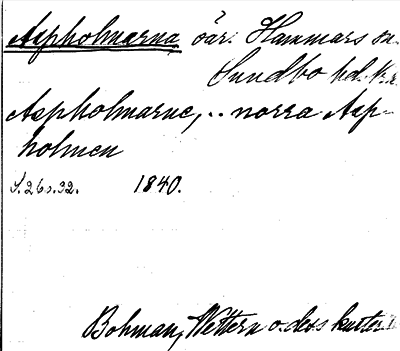 Aspholmarna öar i Hammars sn.
Sundbo hd.
Aspholmarne, .. norra Asp-
holmen
S. 26 o. 32. 1840.
Bohman, Wettern o. dess kuster